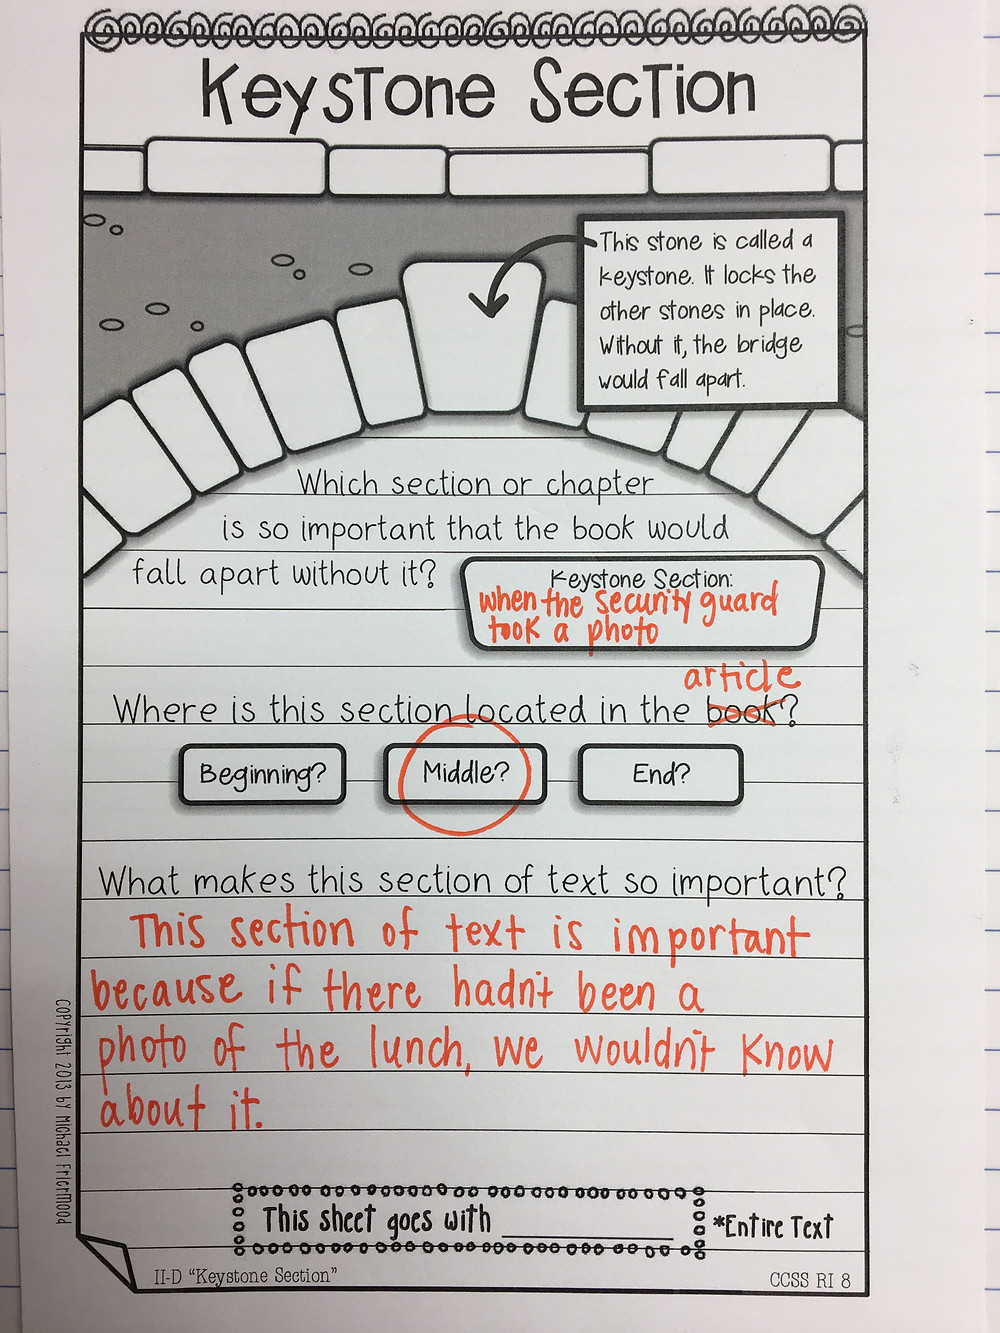 Keystone Section
This stone is called a
keystone. It locks the
other stones in place.
Without it, the bridge
would fall apart.
Which section or chapter
is so important that the book would
fall apart without it?
Keystone Section:
when the security guard
took a photo
article
Where is this section located in the book?
Beginning?
Middle?
End?
What makes this section of text so important?
This section of text is important
because if there hadn't been a
photo of the lunch, we wouldn't know
about it.
Copyright 2013 by Michael Friermood
This sheet goes with ____________
*Entire Text
II-D "Keystone Section"
CCSS RI 8